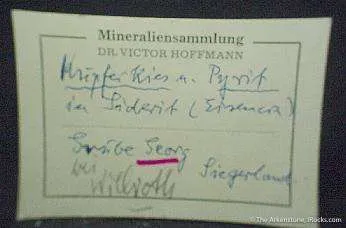 Mineraliensammlung
DR. VICTOR HOFFMANN
Kupferkies u. Pyrit
in Siderit (Eisencia)
Grube Georg
bei Willroth Siegerland
© The Arkenstone, iRocks.com